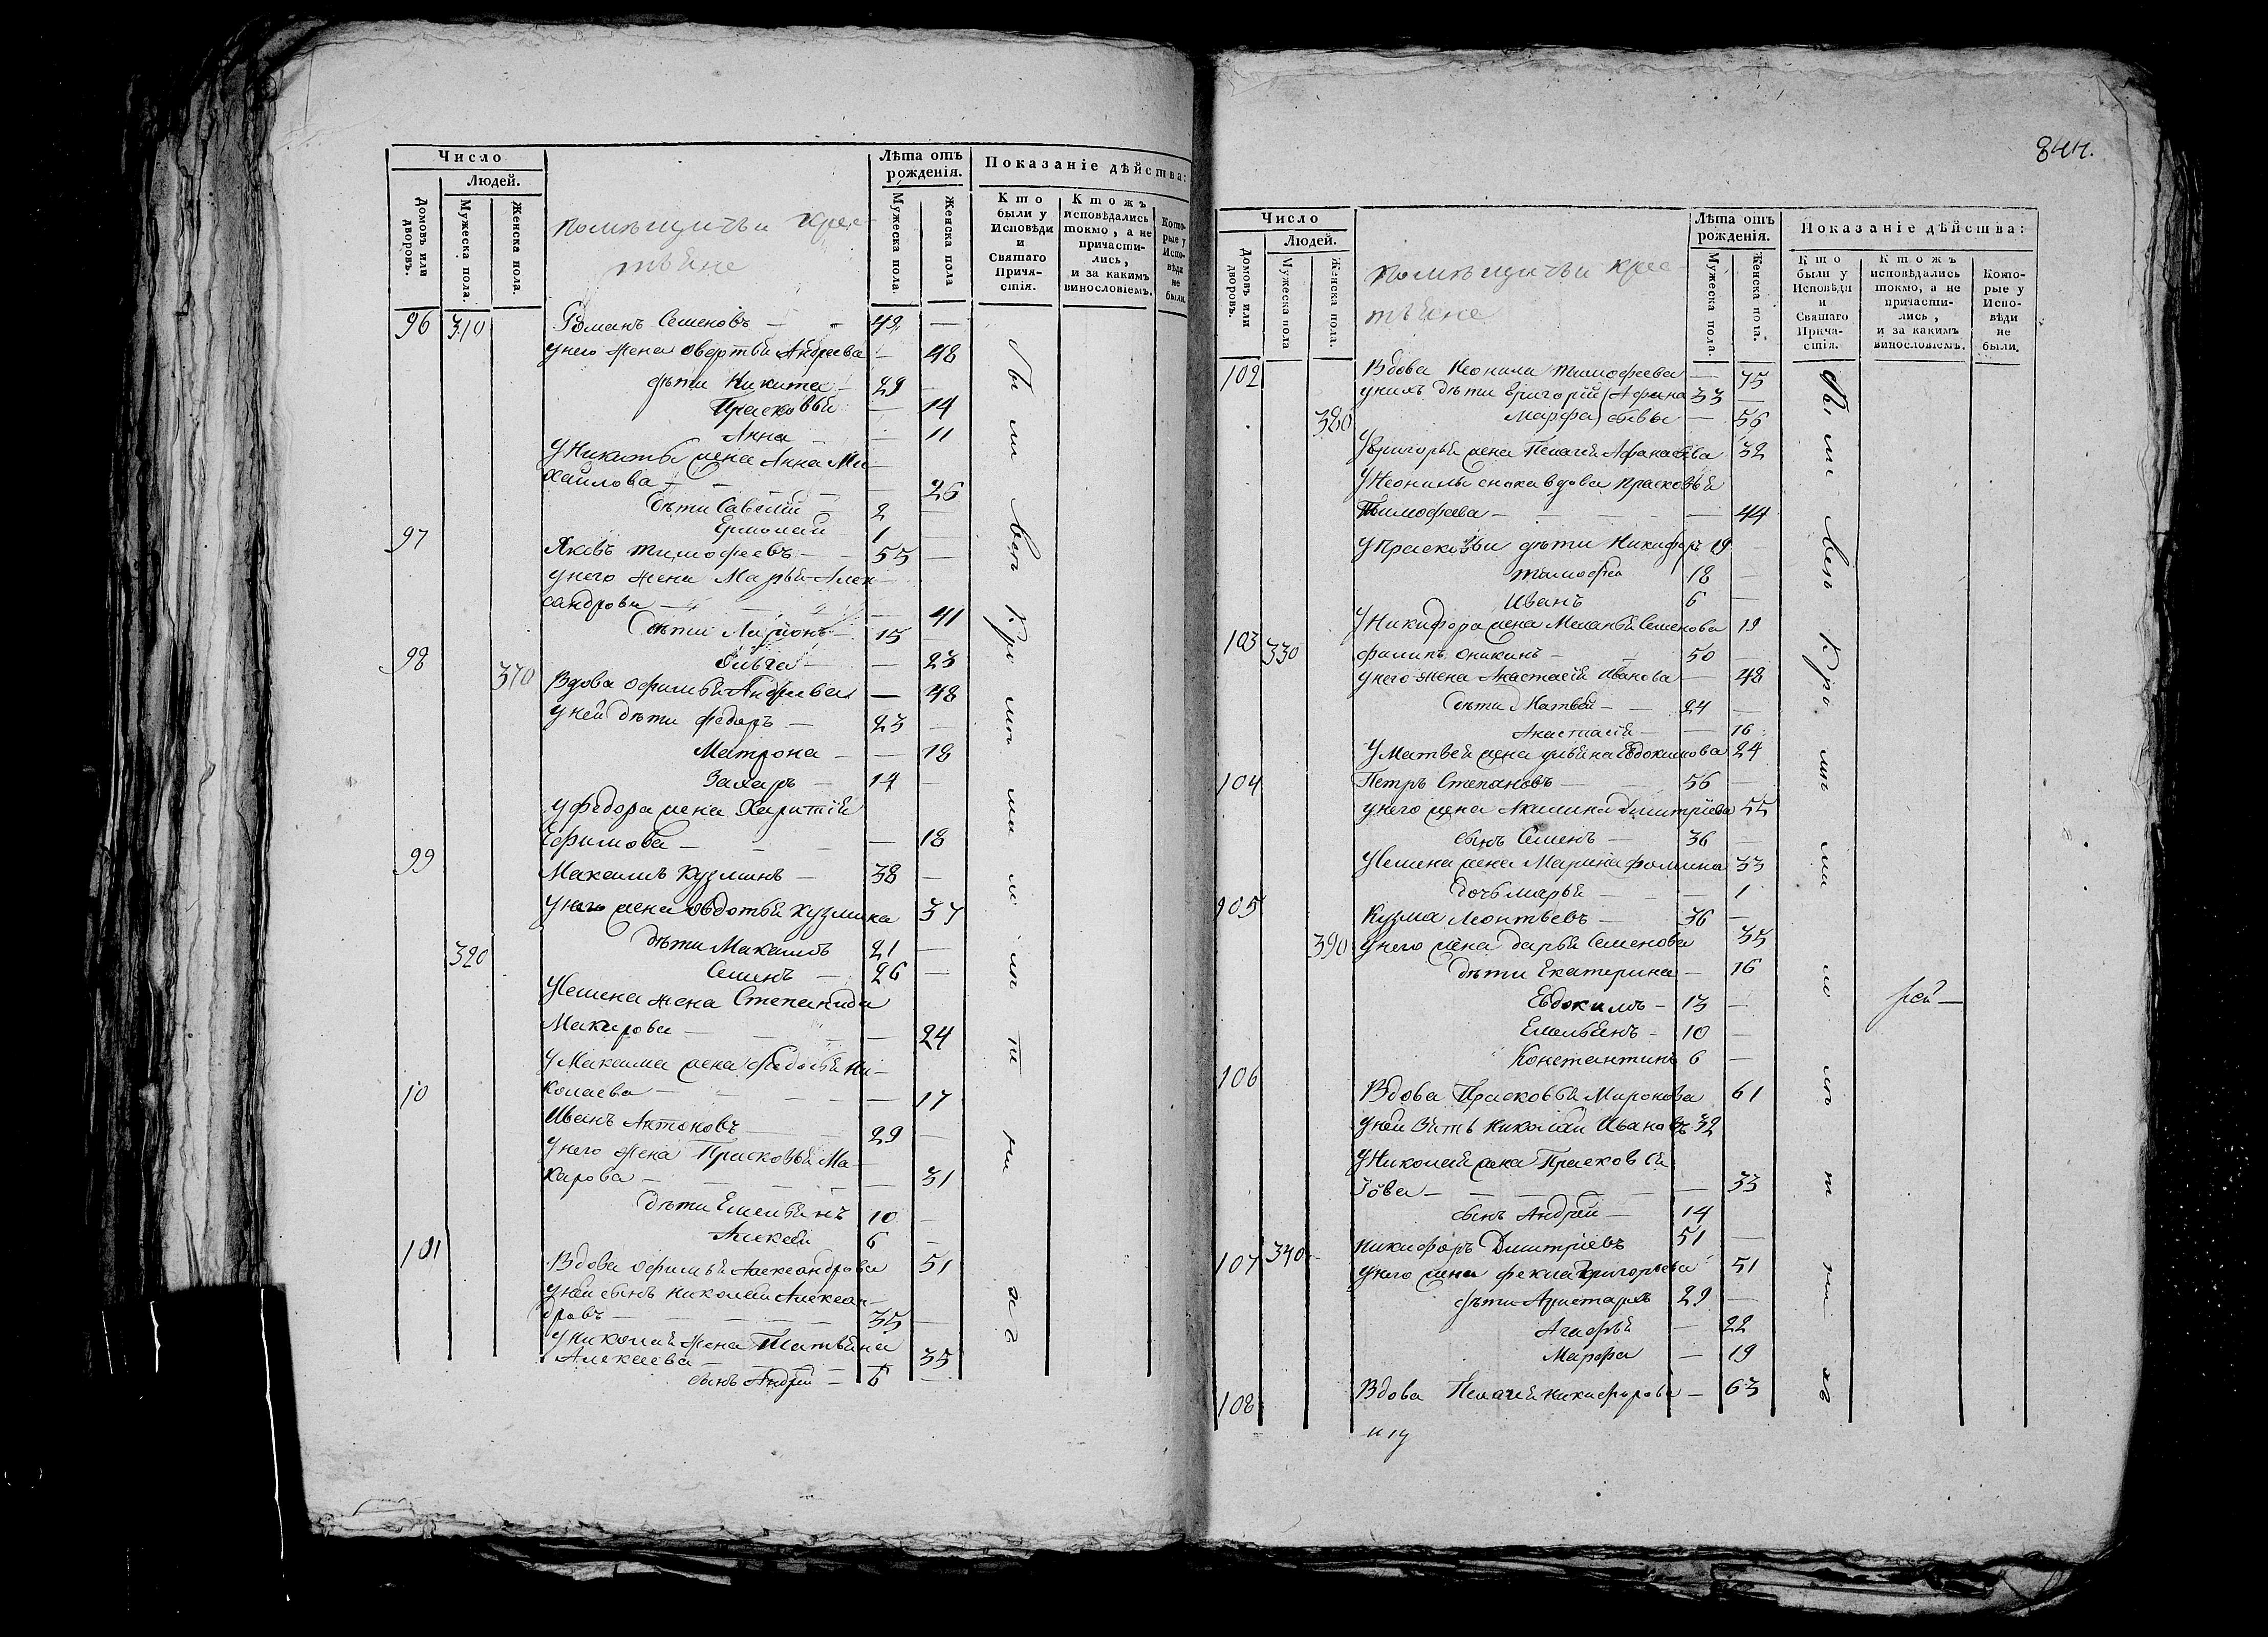 Число
Людей.
Домовъ или дворовъ.
Мужеска пола.
Женска пола.
помѣщичьи крес-
тьяне
Лѣта отъ рожденія.
Мужеска пола.
Женска пола
Показаніе дѣйства:
Кто были у Исповѣди и Святаго Прича-стія.
Ктожъ исповѣдались токмо, а не причасти-лись, и за какимъ винословіемъ.
Кото-рые у Испо-вѣди не были.
96 310 Романъ Семеновъ — 49 —
у него жена Авдотья Андреева — 48
дѣти Никита — 29 —
Прасковья — 14
Анна — 11
У Никиты жена Анна Ми-
хайлова — 26
дѣти Савелій — 2
Ермолай 1
97 Яковъ Тимофеевъ — 55 —
у него жена Марья Алек-
сандрова — 41
дѣти Ларіонъ — 15
98 Ольга — 23
370 Вдова Офимья Андреева — 48
у ней дѣти Федоръ — 23 —
Матрона — 18
Захаръ — 14 —
у Федора жена Харитія
Ефимова — 18
99 Максимъ Кузминъ — 38 —
у него жена Овдотья Кузмина 37
дѣти Максимъ 21 —
320 Семенъ — 26 —
У Семена жена Степанида
Макарова — 24
У Максима жена Федосья Ни-
10 колаева — 17
Иванъ Антоновъ 29 —
У него жена Прасковья Ма-
карова — 31
дѣти Емельянъ 10 —
Алексей 6 —
101 Вдова Офимья Александрова 51
у ней сынъ Николай Алексан-
дровъ — 35 —
у Николая жена Татьяна
Алексеева — 35
сынъ Андрей — 6 —
были всѣ кромѣ
844.
Число
Людей.
Домовъ или дворовъ.
Мужеска пола
Женска пола.
помѣщичьи крес-
тьяне
Лѣта отъ рожденія.
Мужеска пола.
Женска пола.
Показаніе дѣйства:
Кто были у Исповѣди и Святаго Прича-стія.
Ктожъ исповѣдались токмо, а не причасти-лись, и за какимъ винословіемъ.
Кото-рые у Испо-вѣди не были.
102 Вдова Неонила Тимофеева — 75
у нихъ дѣти Григорій (Афана 33 —
380 Марфа) сьевы — 56
У Григорья жена Пелагея Афанасьева 32
У Неонилы сноха вдова Прасковья
Тимофеева — 44
У Прасковьи дѣти Никифоръ 19 —
Тимофей 18 —
Иванъ 6 —
У Никифора жена Меланья Семенова 19
103 330 Филипъ Оникинъ — 50 —
у него жена Анастасія Иванова — 48
дѣти Матвей — 24 —
Анастасія — 16
У Матвея жена Ульяна Евдокимова 24
104 Петръ Степановъ — 56 —
у него жена Акилина Дмитріева 55
сынъ Семенъ — 36 —
У Семена жена Марина Фомина 33
дочь Марья — 1
105 Кузма Леонтьевъ — 36 —
390 у него жена Дарья Семенова 35
дѣти Екатерина — 16
Евдокимъ — 13 —
Емельянъ — 10 —
Константинъ 6 —
106 Вдова Прасковья Миронова 61
у ней зять Николай Ивановъ 32
У Николая жена Прасковья
Зова — 33
сынъ Андрей — 14
107 340 Никифоръ Дмитріевъ 51 —
у него жена Фекла Григорьева 51
дѣти Аристархъ 29 —
Агафья — 22
Марфа — 19
108 Вдова Пелагея Никифорова — 63
были всѣ кромѣ